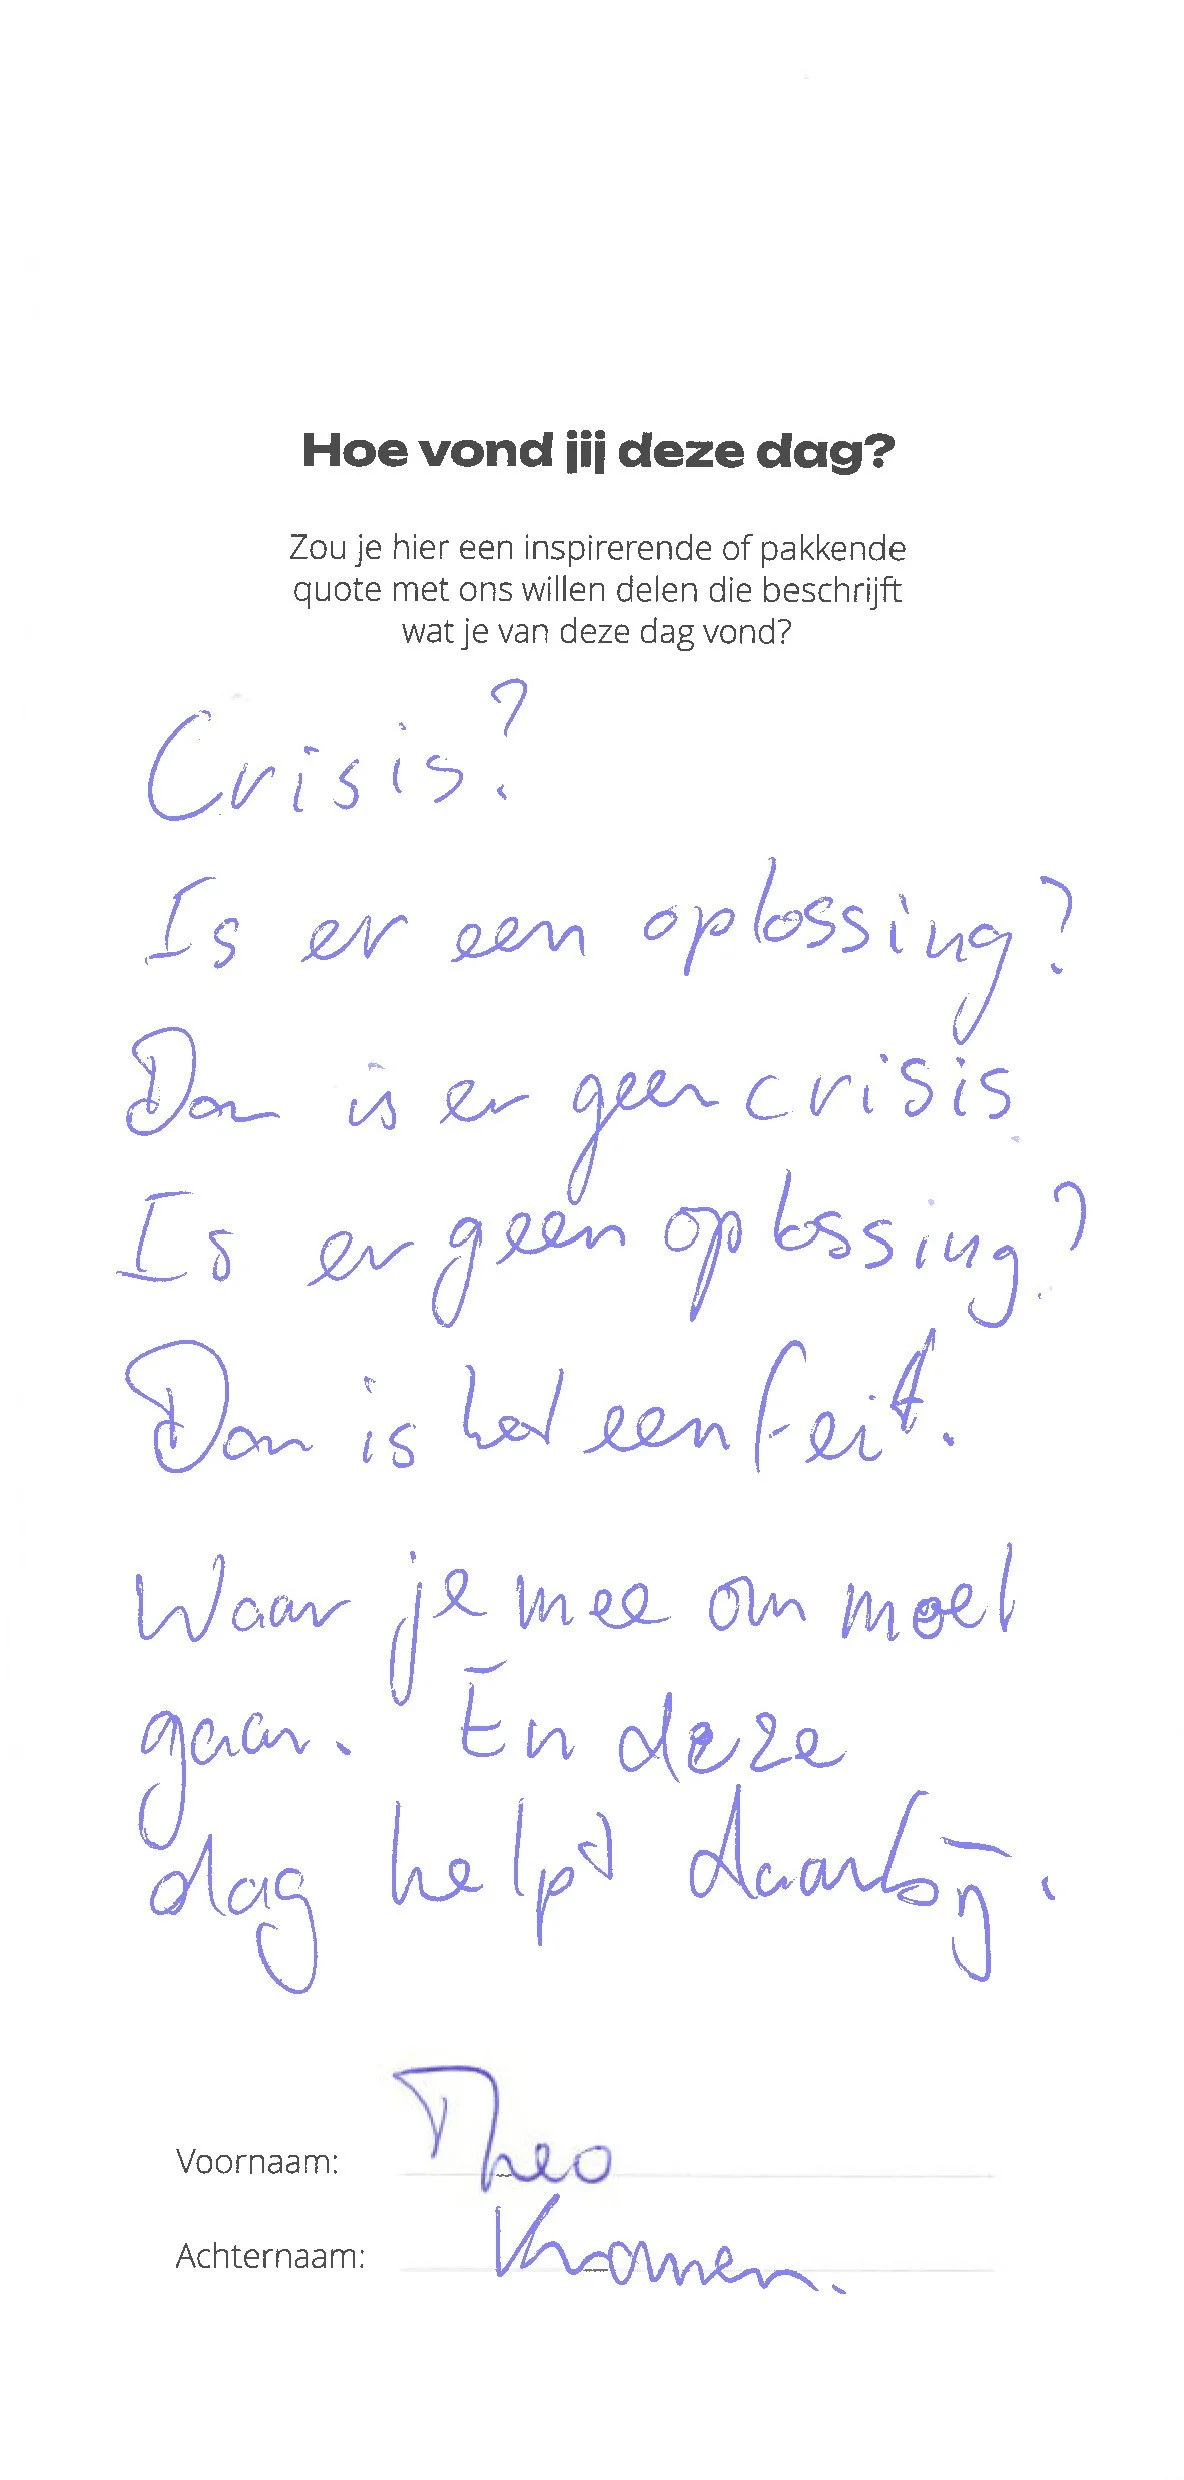 Hoe vond jij deze dag?
Zou je hier een inspirerende of pakkende
quote met ons willen delen die beschrijft
wat je van deze dag vond?
Crisis?
Is er een oplossing?
Dan is er geen crisis
Is er geen oplossing?
Dan is het een feit.
Waar je mee om moet
gaan. En deze
dag helpt daarbij.
Voornaam: Theo
Achternaam: